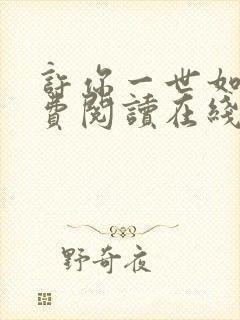 許你一世如
費閱讀在綫
野奇夜